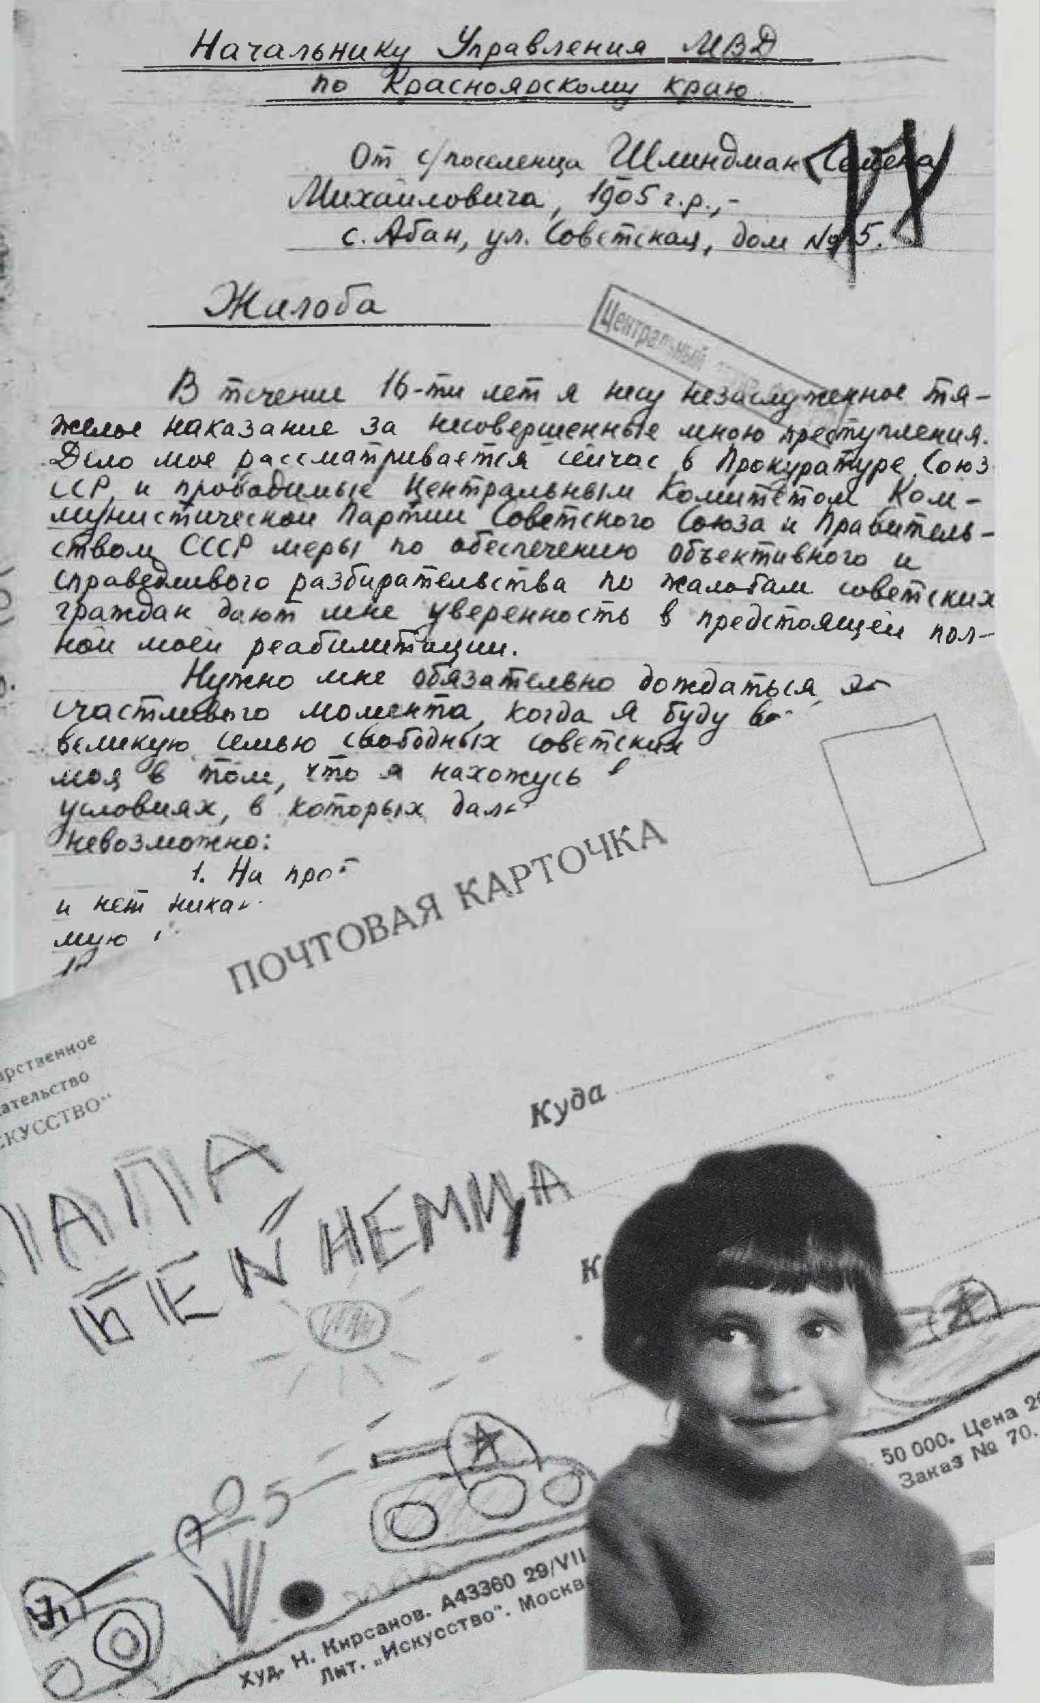 Начальнику Управления МВД
по Красноярскому краю
От с/поселенца Шлиндман Семена
Михайловича, 1905 г.р.,-
с. Абан, ул. Советская, дом № 5.
Жалоба
Центральный
В течение 16-ти лет я несу незаслуженное тя-
желое наказание за несовершенные мною преступления.
Дело мое рассматривается сейчас в Прокуратуре Союз
ССР, и проводимые Центральным Комитетом Ком-
мунистической Партии Советского Союза и Правитель-
ством СССР меры по обеспечению объективного и
справедливого разбирательства по жалобам советских
граждан дают мне уверенность в предстоящей пол-
ной моей реабилитации.
Нужно мне обязательно дождаться
счастливого момента, когда я буду
великую семью свободных советских
моя в том, что я нахожусь в
условиях, в которых
невозможно:
1. На
и нет
мую
ПОЧТОВАЯ КАРТОЧКА
арственное
ательство
СКУССТВО"
Куда
К
ПАПА
БЕЙ НЕМЦА
50 000. Цена 20
Заказ № 70.
Худ. Н. Кирсанов. А43360 29/VII
Лит. „Искусство". Москва